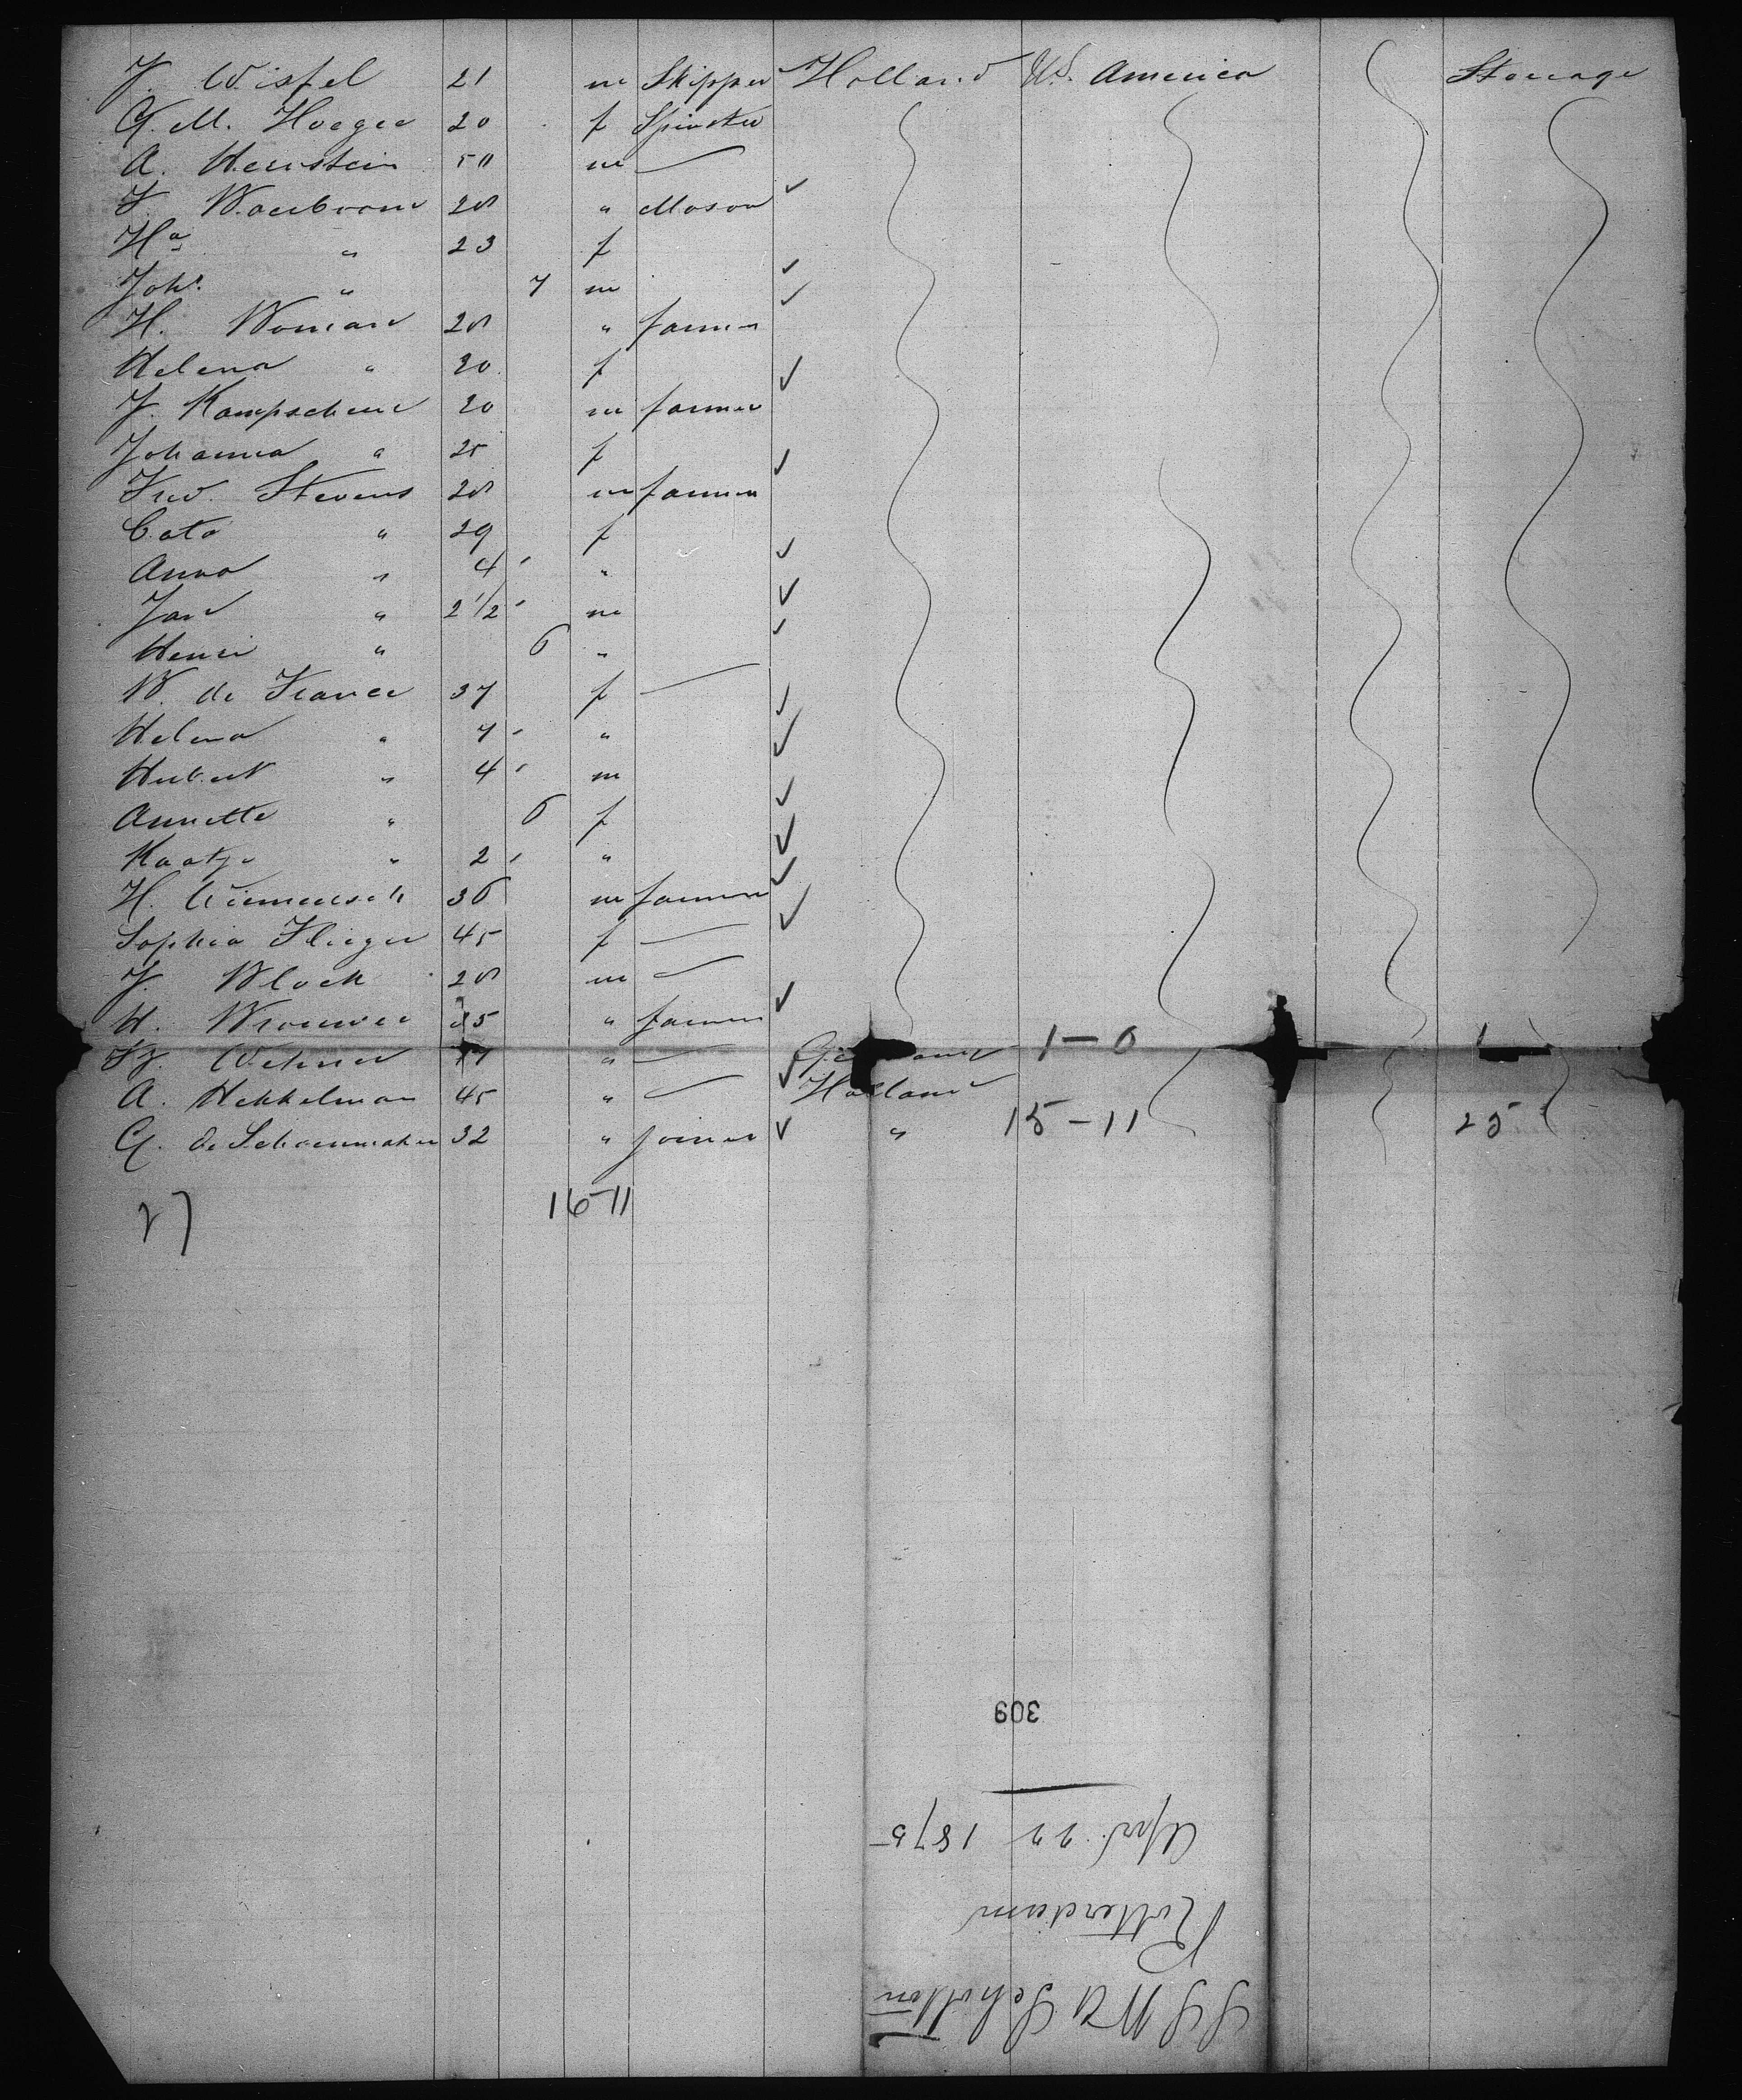 J. Wisfel 21 m Skipper Holland U.S. America Steerage
G. M. Hoegee 20 f Spinster
A. Hernstein 50 m —
F. Waerboom 28 " Mason
Ha " 23 f
Joh's " 7 m
H. Woman 28 " farmer
Helena " 30 f
J. Kampscheur 20 m farmer
Johanna " 25 f
Fred. Stevens 28 m farmer
Cato " 29 f
Anna " 4 "
Jan " 2 1/2 m
Henri " 6 "
W. de France 37 f —
Helena " 7 "
Hubert " 4 m
Annette " 6 f
Kaatje " 2 "
H. 36 m farmer
Sophia Flieger 45 f —
J. Block 28 m —
H. Brouwer 35 " farmer
Fz. Wehner " — Germany 1-0 1
A. Hekkelman 45 " — Holland
G. de Schoenmaker 32 " joiner " 15-11 25
27 16-11
309
Apr. 22 1875
Rotterdam
SS W A Scholten